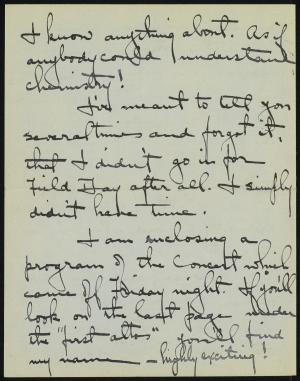 I know anything about. As if
anybody could understand
chemistry!
I've meant to tell you
several times and forgot it,
that I didn't go in for
Field Day after all. I simply
didn't have time.
I am enclosing a
program of the Concert which
came off Friday night. If you'll
look on the last page under
the "first altos" you'll find
my name – highly exciting!